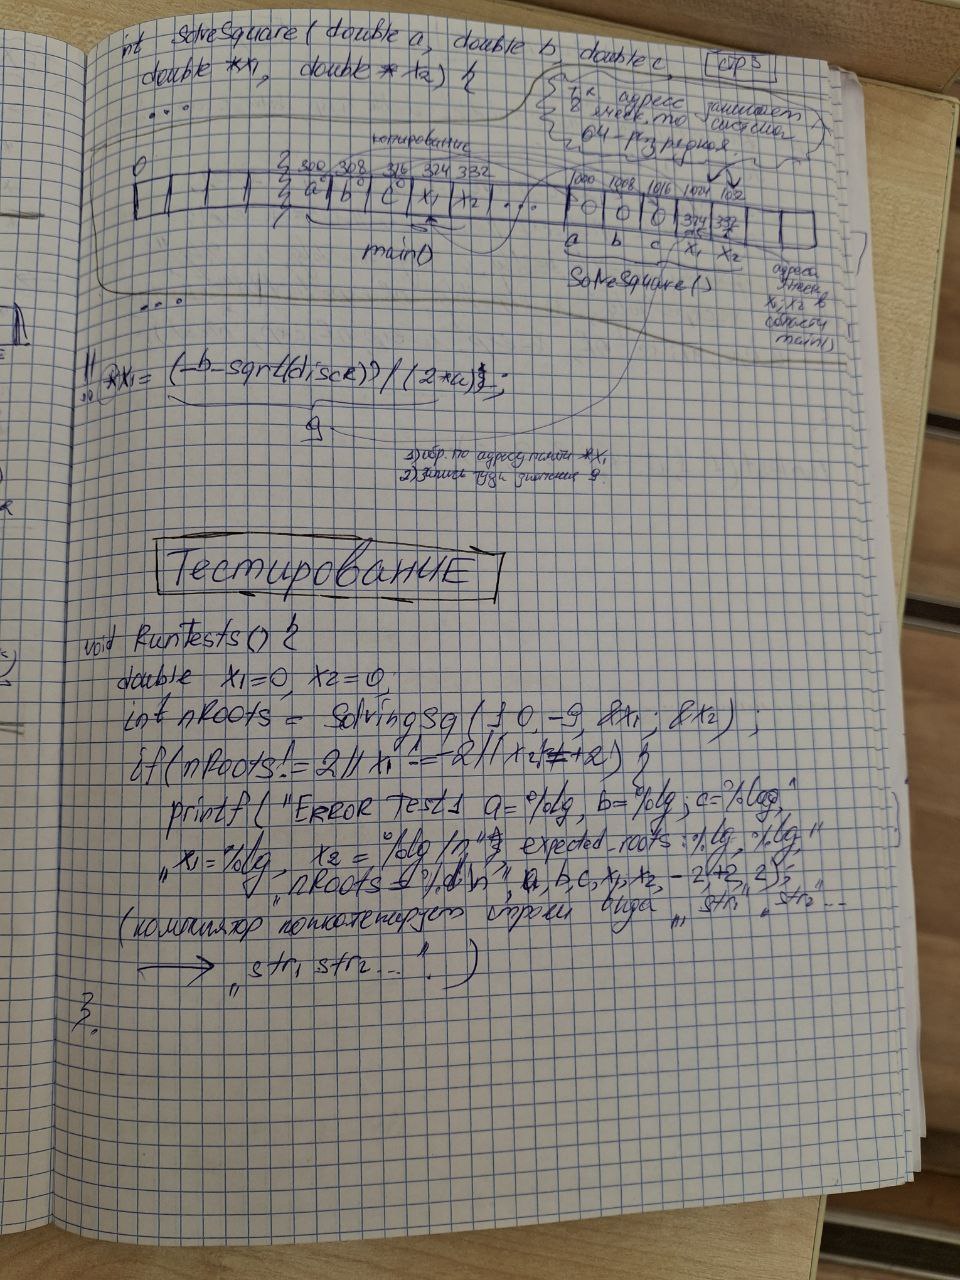 int SolveSquare (double a, double b, double c,
стр 3
double *x1, double * x2) {
...
8 адресс занимает
ячеек, то система
64-разредная
копирование
0 300 308 316 324 332 1000 1008 1016 1024 1032
a b c x1 x2 ... 0 0 0 324 332
a b c x1 x2
main()
SolveSquare()
адреса
ячеек
x1; x2 в
области
main()
...
*x1 = (-b-sqrt(discr))/(2*a);
9
1) обр. по адресу *x1
2) запись туда значения 9.
ТестированиЕ
void RunTests() {
double x1=0, x2=0;
int nRoots = SolvingSq (1 0, -9, &x1; &x2) ;
if(nRoots!=2||x1!=-2||x2!=+2) {
printf ("ERROR Test1 a=%lg, b=%lg; c=%lg,"
"x1=%lg, x2=%lg/n expected roots: %lg, %lg,"
"nRoots = %d\n", a, b, c, x1, x2, -2, +2, 2);
(компилятор строки вида "str1" "str2"...
→ "str1 str2 ...". )
}.